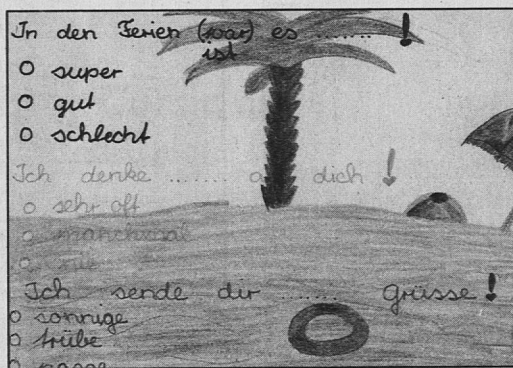 In den Ferien (war) es ........ !
ist
o super
o gut
o schlecht
Ich denke ........ a dich !
o sehr oft
o manchmal
o nie
Ich sende dir ........ grüsse !
o sonnige
o trübe
o nasse